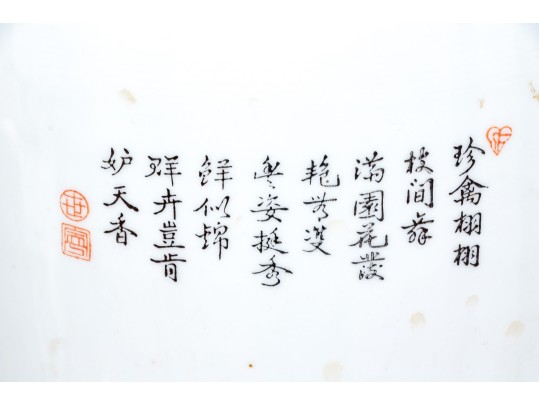 珍禽栩栩
枝间舞
满園花發
艳芳双
豐姿挺秀
鲜似锦
群卉豈肯
妒天香